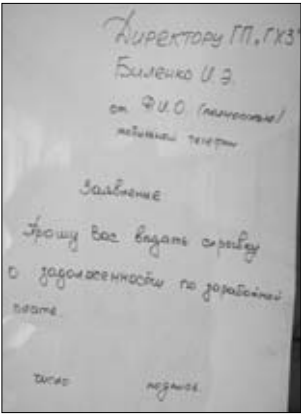 Директору ГП "ГХЗ"
Биленко И. Э.
от Ф.И.О. (полностью)
мобильный телефон
Заявление
Прошу Вас выдать справку
о задолженности по заработной
плате.
число подпись